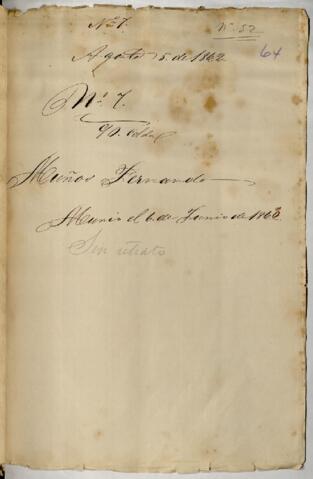 Nº 7.
Nº 52
64
Agosto 5. de 1862
Nº 7.
Muñoz Fernando
Murió el 6 de Junio de 1863
Sin retrato